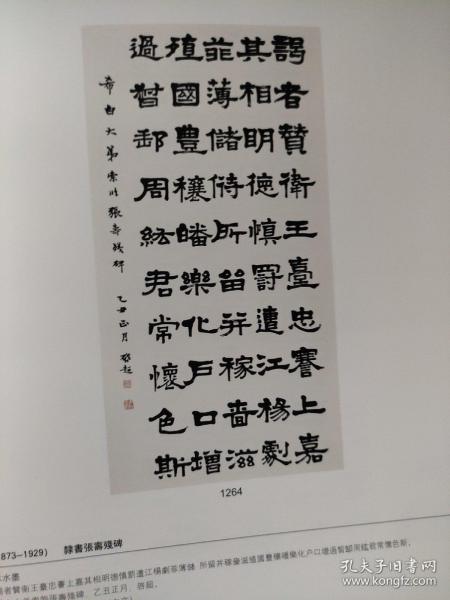 謁者贊衛王臺忠謇上嘉
其相明德慎罰遭江楊劇
菲薄儲偫所畄并稼嗇滋
殖國豐穰皤樂化戶口增
過督郵周紘君常懷色斯
希白大弟索臨張壽殘碑 乙丑正月 啟超
1264
873-1929) 隸書張壽殘碑
水墨
者贊衛王臺忠謇上嘉其相明德慎罰遭江楊劇菲薄儲 所畄并稼嗇滋殖國豐穰皤樂化户口增過督郵周紘君常懷色斯。
張壽殘碑。乙丑正月，啓超。
孔夫子旧书网
kongfz.com